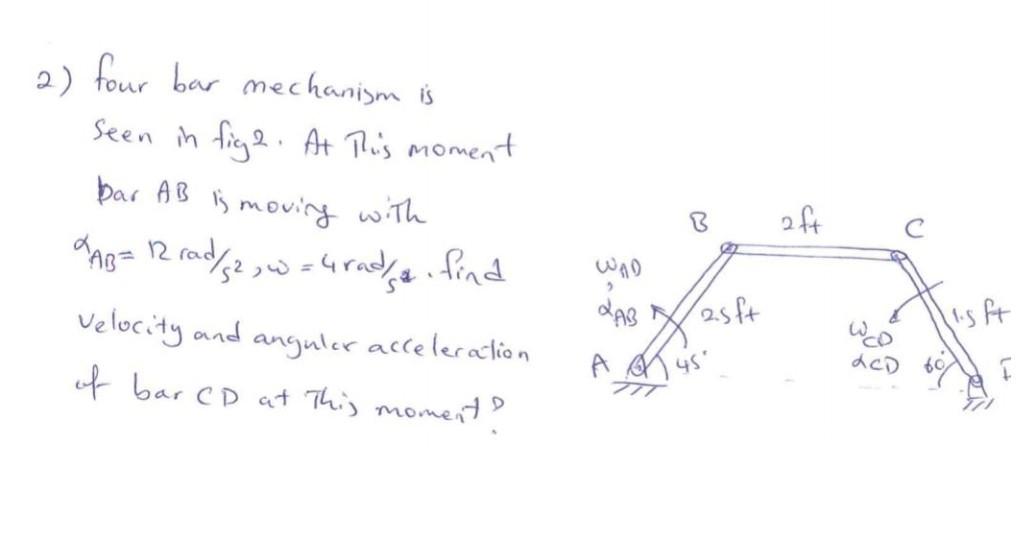 2) four bar mechanism is
seen in fig2. At This moment
bar AB is moving with
αAB = 12 rad/s², ω = 4 rad/s. find
velocity and angular acceleration
of bar CD at This moment?
B 2ft C
ωAD
,
αAB 2.5ft
1.5 ft
ωCD
αCD 60°
A 45°